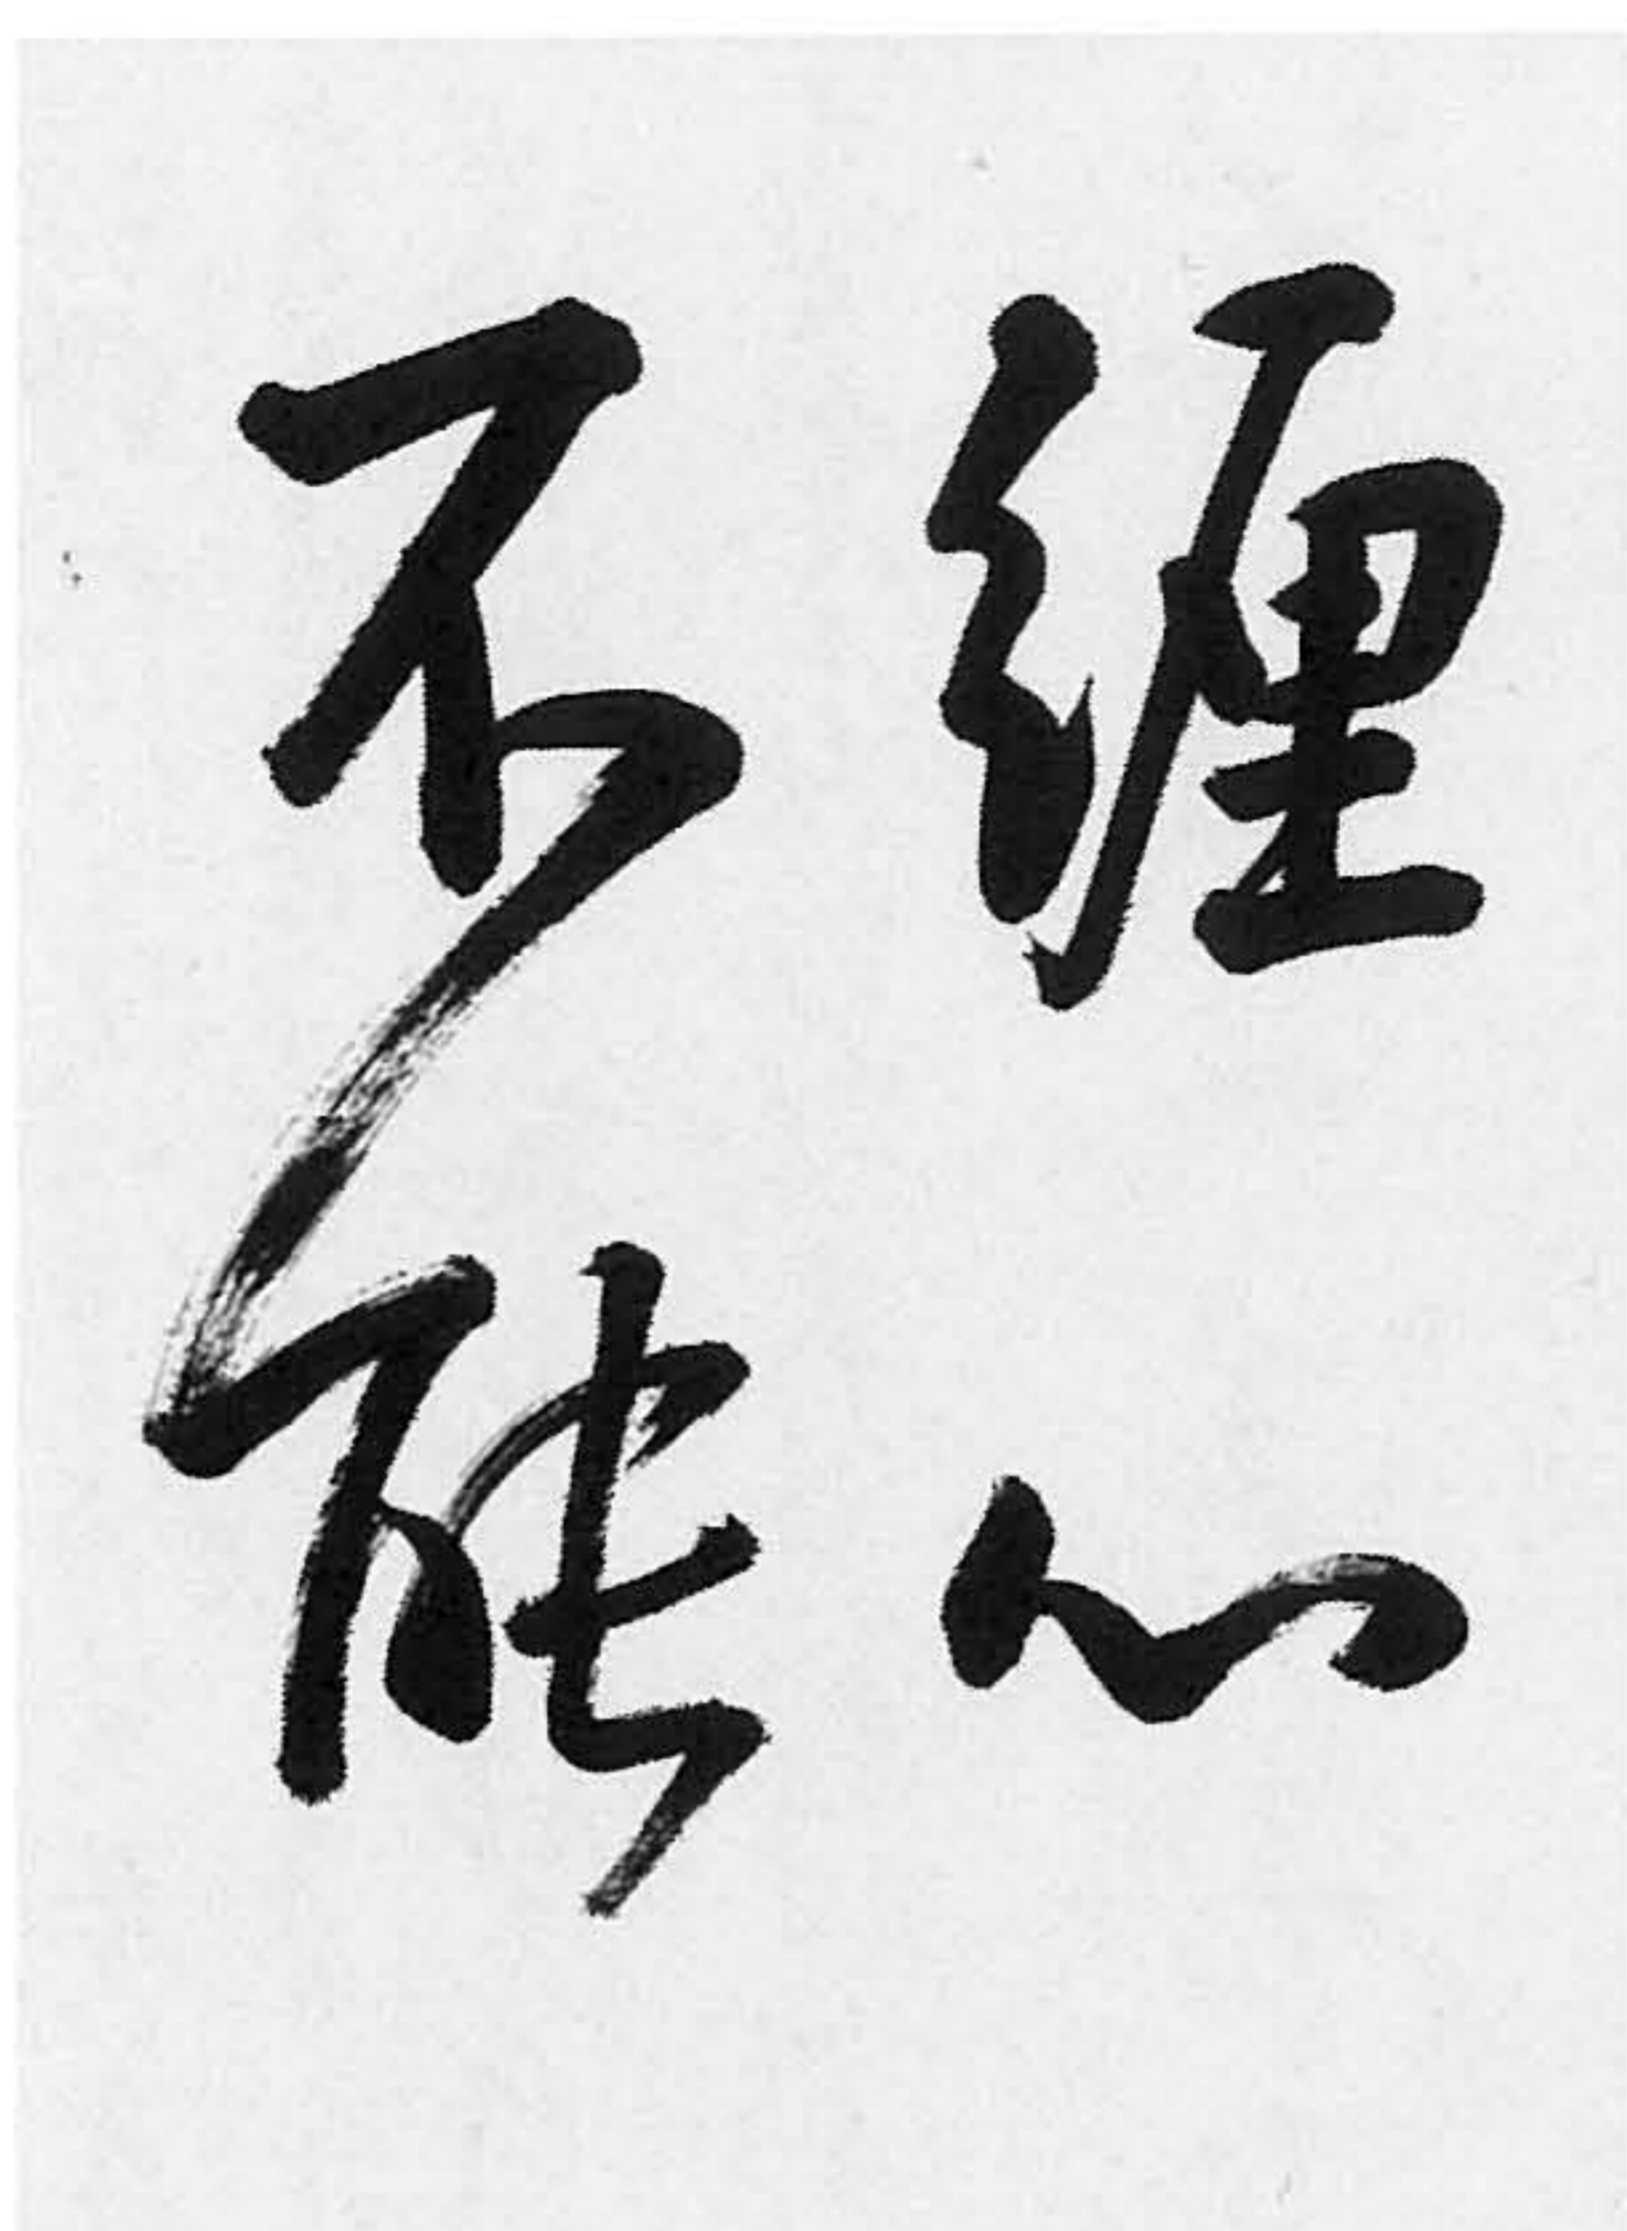 缠心
不能